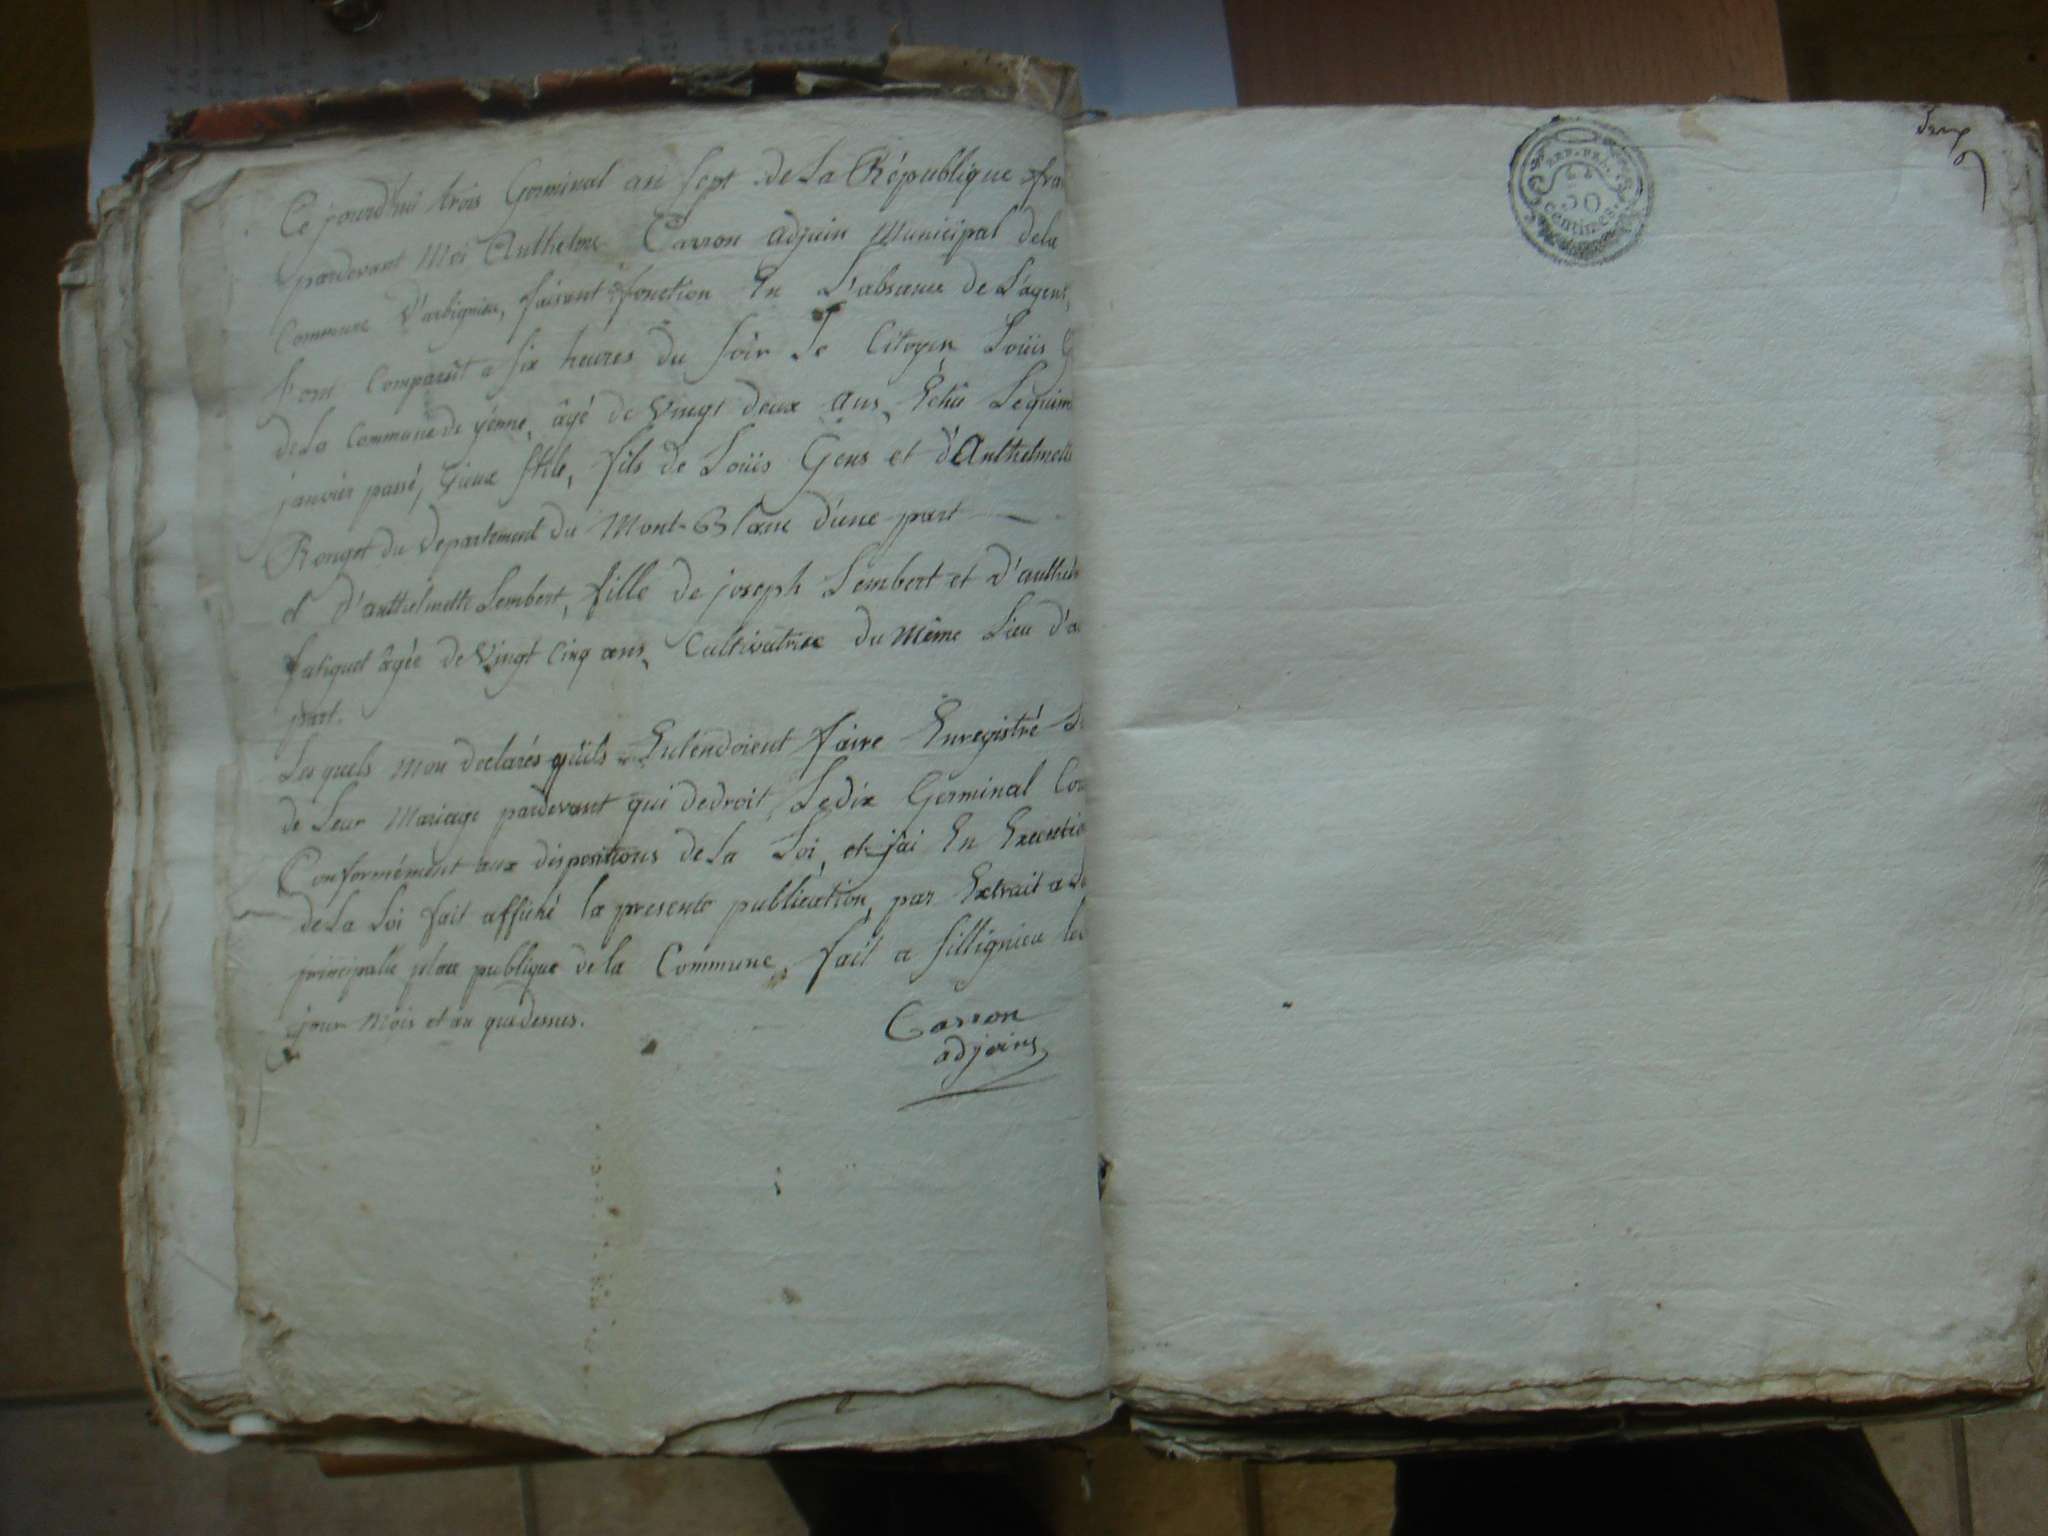 Ce jourd'hui trois Germinal an sept de la République fra
pardevant Moi Anthelme Carron adjoin Municipal dela
Commune d'arbignieu, faisant fonction En L'absence de L'agent,
sont Comparût a six heures du soir Le Citoyen Loüis G
de La Commune de yenne, âgé de vingt deux ans, Echü Lequin
janvier passé, vieux stile, fils de Loüis Gens et d'Anthelmette
Rouget du département du Mont-Blanc d'une part
et D'anthelmette Lembert, fille de joseph Lembert et d'anthelm
fatiguet âgée de vingt Cinq ans, Cultivatrice du Même Lieu d'au
part.
Les quels mon declarés qu'ils Entendoient faire Enregistré L
de Leur Mariage pardevant qui dedroit, Ledix Germinal Cou
Conformément aux dispositions de La Loi, et j'ai En Executio
de La Loi fait affiché la presente publication, par Extrait a L
principalle place publique de la Commune, fait a sillignieu les
jour Mois et an que dessus.
Carron
adjoint
deux
REP. FRA.
50
centimes.